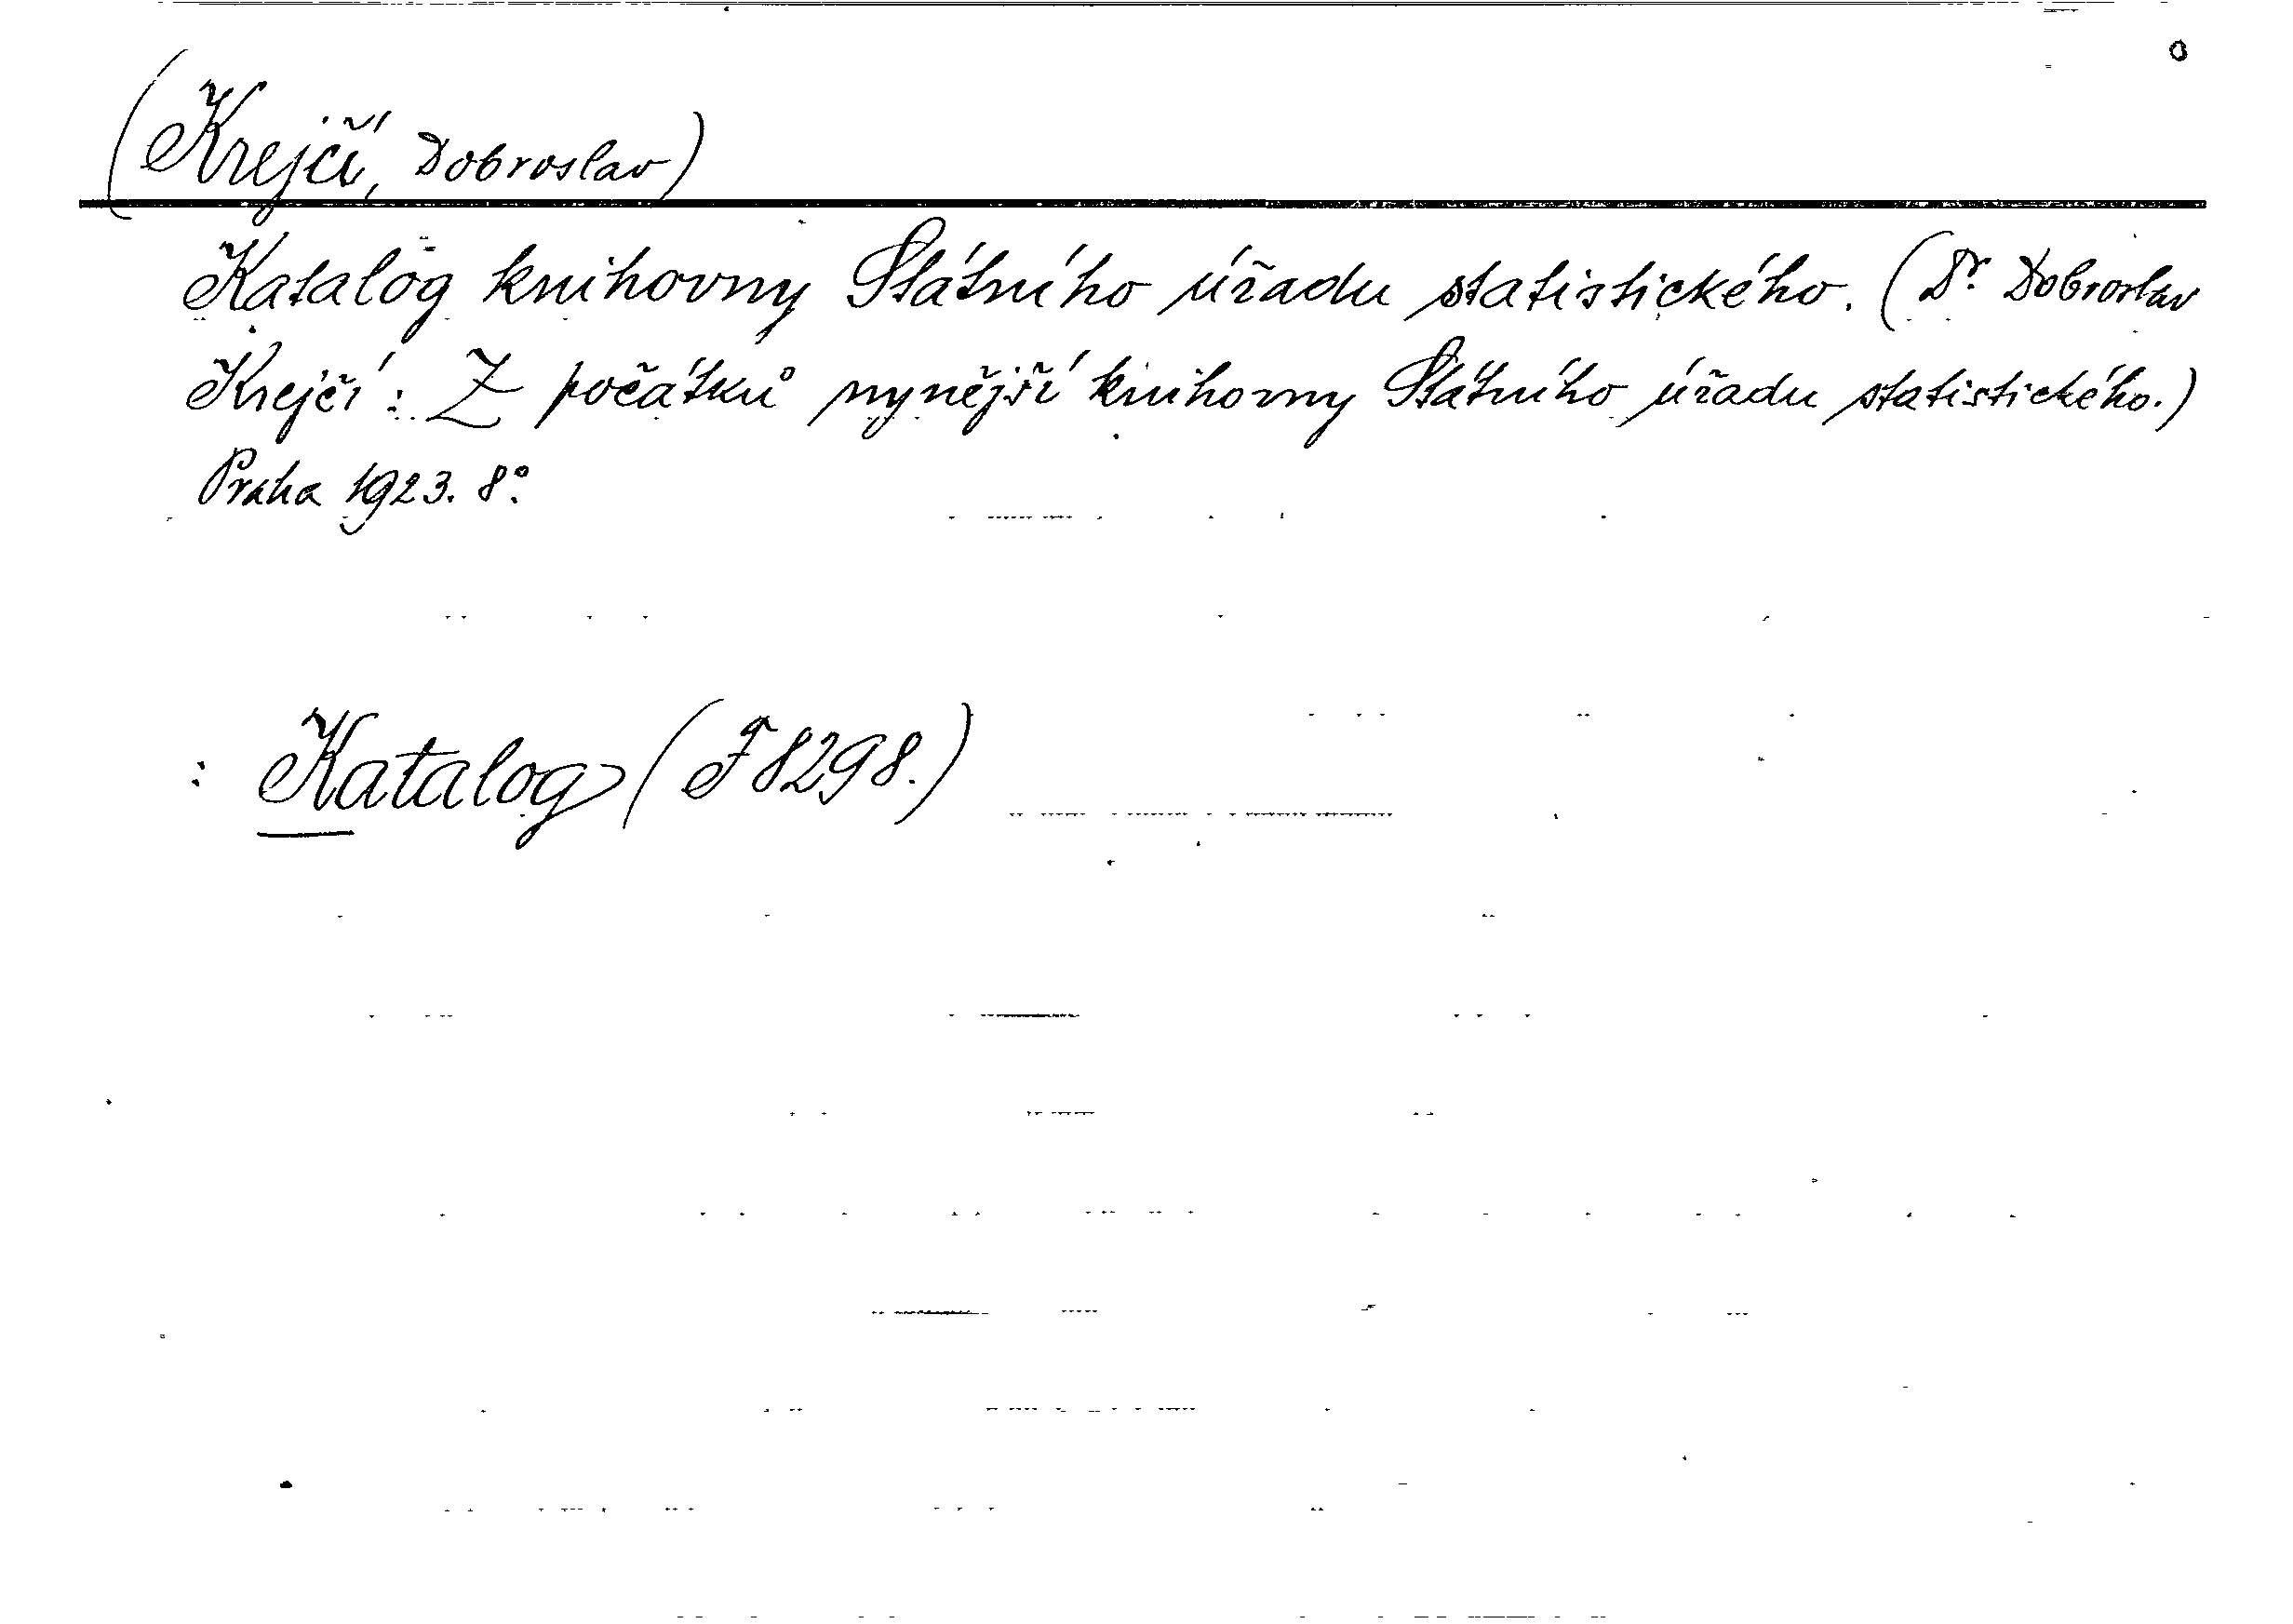 (Krejčí, Dobroslav)
Katalog knihovny Státního úřadu statistického. (Dr. Dobroslav
Krejčí: Z počátků nynější knihovny Státního úřadu statistického.)
Praha 1923. 8°.
: Katalog (F 8298.)